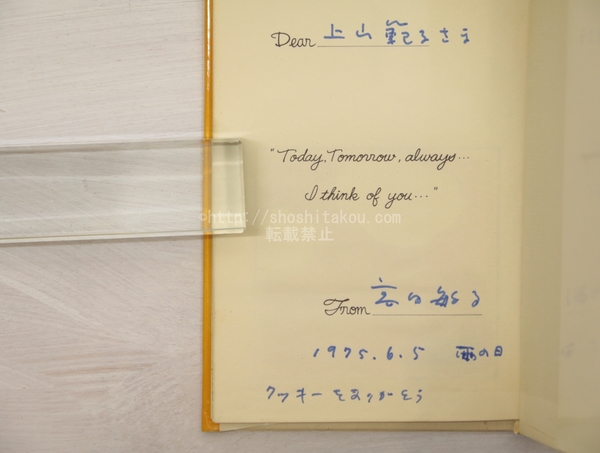 Dear 上山範子さま
"Today, Tomorrow, always...
I think of you..."
©http://shoshitakou.com
転載禁止
From
1975.6.5 雨の日
クッキーをありがとう